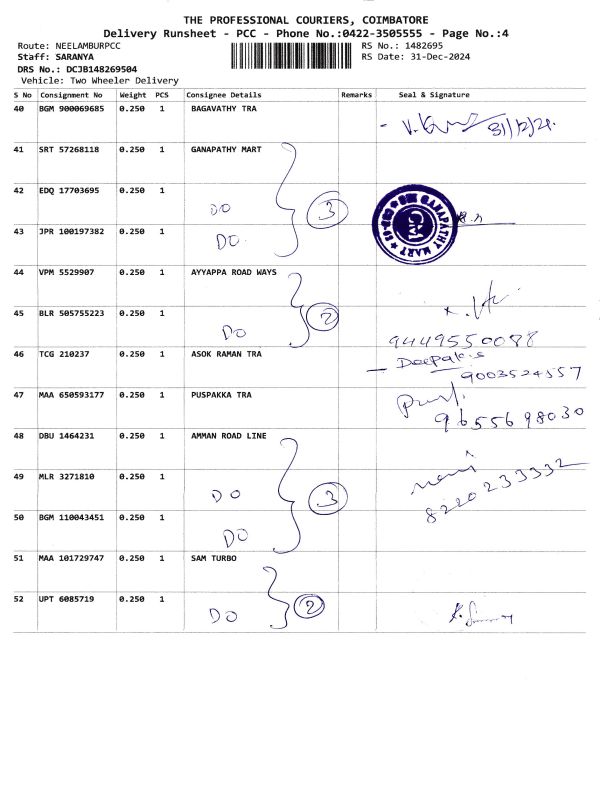 THE PROFESSIONAL COURIERS, COIMBATORE
Delivery Runsheet - PCC - Phone No.:0422-3505555 - Page No.:4
Route: NEELAMBURPCC RS No.: 1482695
Staff: SARANYA RS Date: 31-Dec-2024
DRS No.: DCJB148269504
Vehicle: Two Wheeler Delivery
S No Consignment No Weight PCS Consignee Details Remarks Seal & Signature
40 BGM 900069685 0.250 1 BAGAVATHY TRA
31/12/24
41 SRT 57268118 0.250 1 GANAPATHY MART
42 EDQ 17703695 0.250 1
DO 3
GANAPATHY MART
43 JPR 100197382 0.250 1
DO
44 VPM 5529907 0.250 1 AYYAPPA ROAD WAYS
45 BLR 505755223 0.250 1
2
DO
9449550088
46 TCG 210237 0.250 1 ASOK RAMAN TRA
Deepak.s
9003524557
47 MAA 650593177 0.250 1 PUSPAKKA TRA
9655698030
48 DBU 1464231 0.250 1 AMMAN ROAD LINE
49 MLR 3271810 0.250 1
DO 3
8220233332
50 BGM 110043451 0.250 1
DO
51 MAA 101729747 0.250 1 SAM TURBO
52 UPT 6085719 0.250 1
DO 2